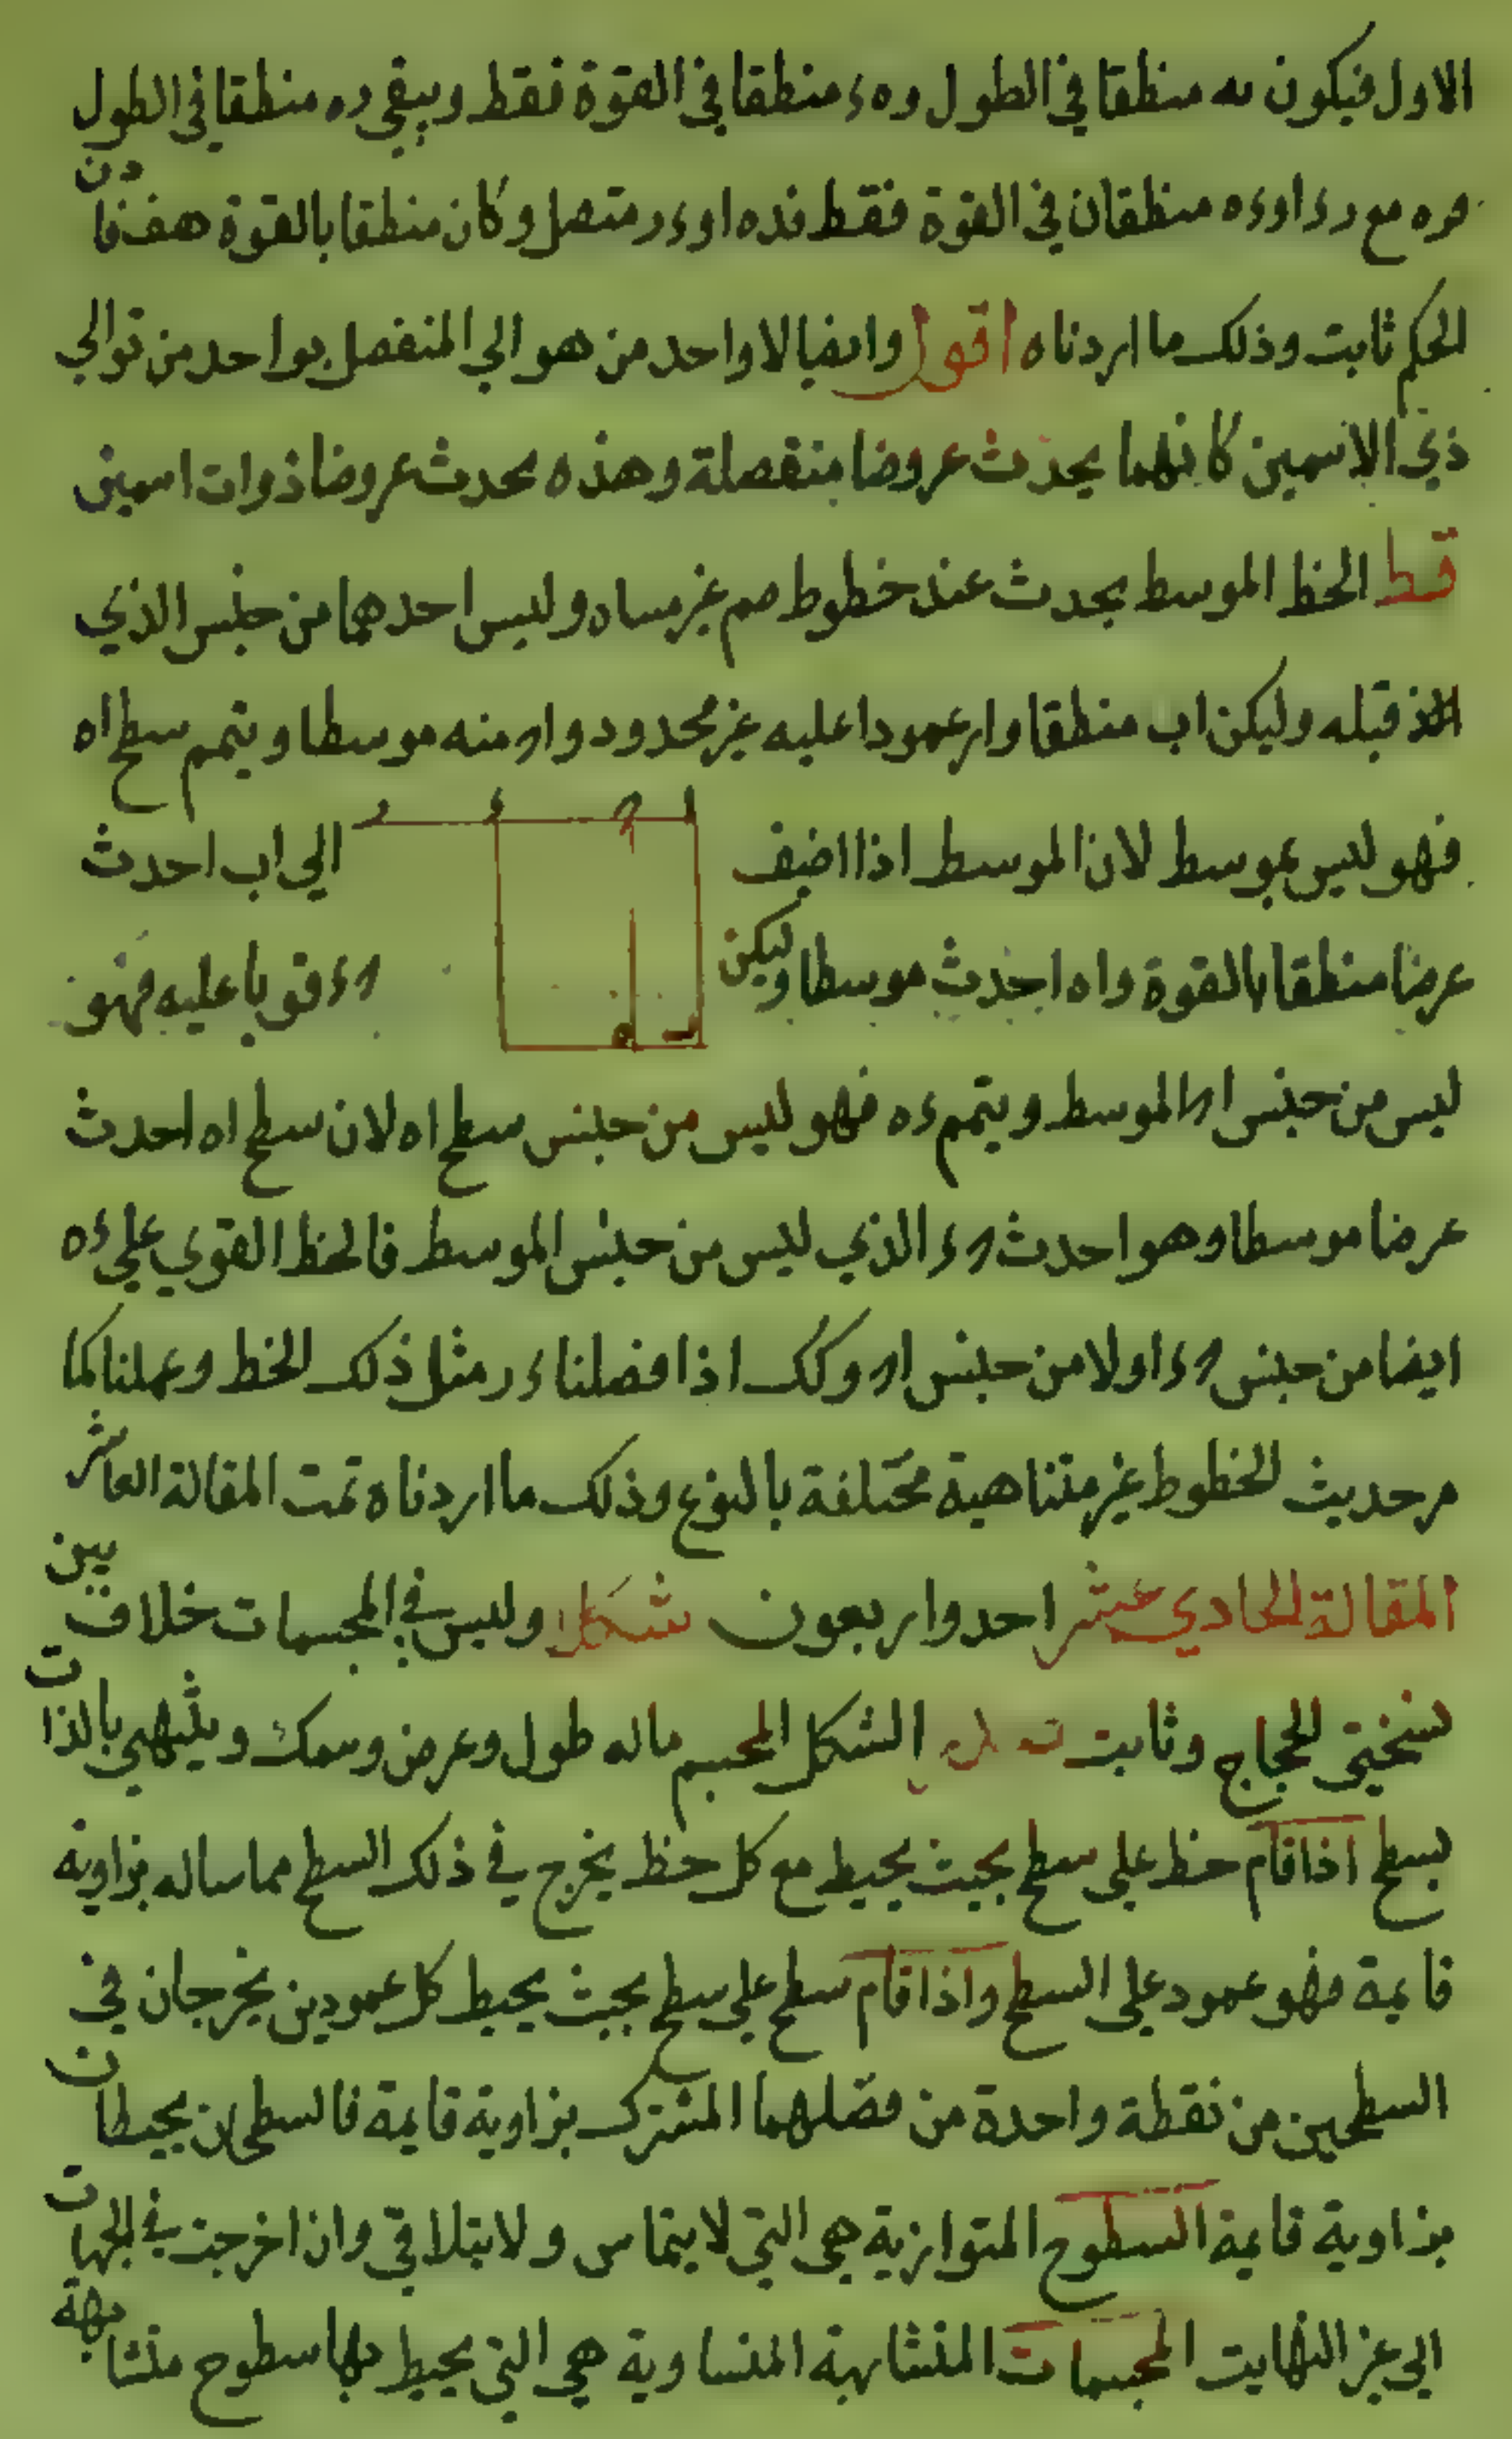 الاول فيكون ںه منطقا في الطول وه ء منطقا في القوة فقط ويبقي ره منطقا في الطول
فره مع رء اوءه منطقان في القوة فقط فده اوءر متصل وكان منطقا بالقوة هف فادن
الحكم ثابت وذلك ما اردناه اقول وايضا لا واحد من هوالي المنفصل بواحد من توالي
ذي الاسمين كانهما يحدث عروضا منفصلة وهذه يحدث عروضا ذوات اسمين
قط الخط الموسط يحدث عند خطوط صم غير مساه وليس احدهما من جنس الذي
قبله وليكن اب منطقا وار عمودا عليه غير محدود واح منه موسطا ويتمم سطح اه
فهو ليس بموسط لان الموسط اذا اضيف الي اب احدث
عرضا منطقا بالقوة واه احدث موسطا وليكن حء قويا عليه فهو
ليس من جنس اح الموسط ويتمم ءه فهو ليس من جنس سطح اه لان سطح اه احدث
عرضا موسطا وهو احدث حء الذي ليس من جنس الموسط فالخط القوي علي ءه
ايضا من جنس حء اولا من جنس اح وكك اذا فصلنا ءر مثل ذلك الخط وعملنا كما
مر حديث الخطوط غير متناهية مختلفة بالنوع وذلك ما اردناه تمت المقالة العاشر
المقالة الحادي عشر احد واربعون شكلا وليس في المجسمات خلاف بين
نسختي الحجاج وثابت الشكل المجسم ماله طول وعرض وسمك وينتهي بالذات
بسطح اذا قام خط علي سطح بحيث يحيط مع كل خط يخرج في ذلك السطح مماساله بزاوية
قايمة فهو عمود علي السطح واذا قام سطح علي سطح بحيث يحيط كل عمودين يخرجان في
السطحين من نقطة واحدة من فصلهما المشترك بزاوية قايمة فالسطحان يحيطان
بزاوية قايمة السطوح المتوازية هي التي لا يتماس ولا يتلاقي وان اخرجت في الجهات
الي غير النهايت المجسمات المتشابهة المتساوية هي التي يحيط بها سطوح متشابهة